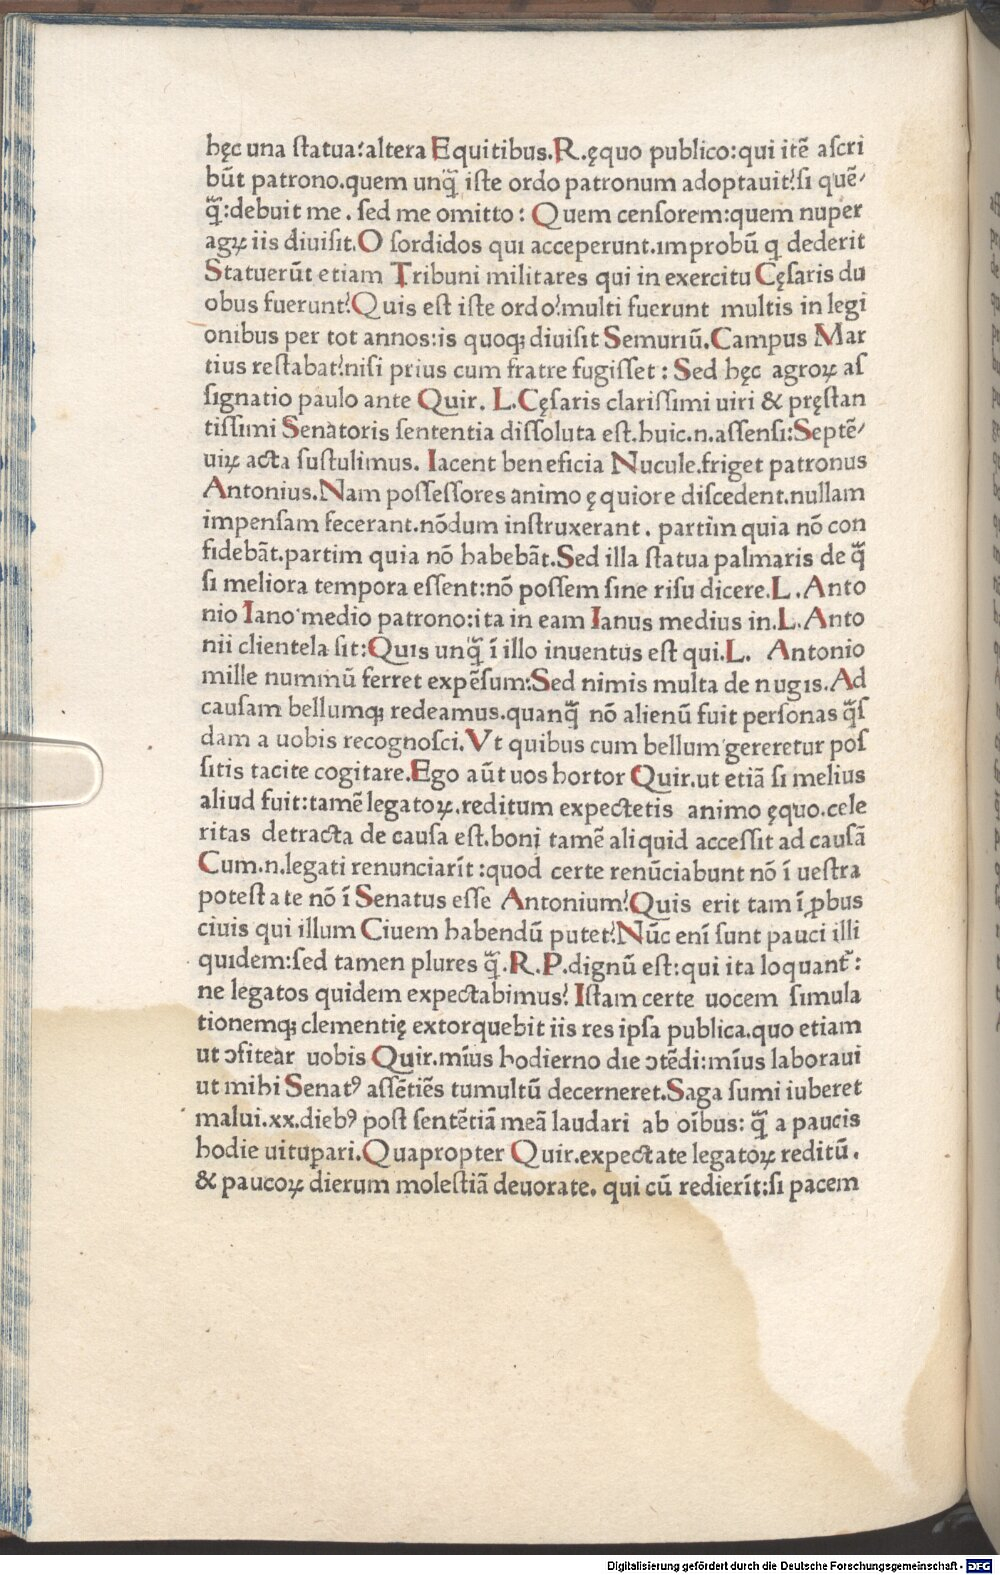 hęc una ſtatua:altera Equitibus.R.ęquo publico:qui itē aſcri
būt patrono.quem unq̄̃ iſte ordo patronum adoptauit?ſi quē-
q̄̃:debuit me. ſed me omitto: Quem cenſorem:quem nuper
agꝝ iis diuiſit.O ſordidos qui acceperunt.improbū q dederit
Statuerūt etiam Tribuni militares qui in exercitu Cęſaris du
obus fuerunt?Quis eſt iſte ordo?multi fuerunt multis in legi
onibus per tot annos:is quoqꝫ diuiſit Semuriū.Campus Mar
tius reſtabat?niſi prius cum fratre fugiſſet: Sed hęc agroꝝ aſ
ſignatio paulo ante Quir. L.Cęſaris clariſſimi uiri & pręſtan
tiſſimi Senatoris ſententia diſſoluta eſt.huic.n.aſſenſi:Septē-
uiꝝ acta ſuſtulimus. Iacent beneficia Nucule.friget patronus
Antonius.Nam poſſeſſores animo ęquiore diſcedent.nullam
impenſam fecerant.nōdum inſtruxerant. partim quia nō con
fidebāt.partim quia nō habebāt.Sed illa ſtatua palmaris de q̄̃
ſi meliora tempora eſſent:nō poſſem ſine riſu dicere.L.Anto
nio Iano medio patrono:ita in eam Ianus medius in.L.Anto
nii clientela ſit:Quis unq̄̃ ī illo inuentus eſt qui.L. Antonio
mille nummū ferret expēſum:Sed nimis multa de nugis.Ad
cauſam bellumqꝫ redeamus.quanq̄̃ nō alienū fuit perſonas q̄̃ſ
dam a uobis recognoſci.Vt quibus cum bellum gereretur poſ
ſitis tacite cogitare.Ego aūt uos hortor Quir.ut etiā ſi melius
aliud fuit:tamē legatoꝝ.reditum expectetis animo ęquo.cele
ritas detracta de cauſa eſt.boni tamē aliquid acceſſit ad cauſā
Cum.n.legati renunciarīt:quod certe renūciabunt nō ī ueſtra
poteſtate nō ī Senatus eſſe Antonium?Quis erit tam īꝓbus
ciuis qui illum Ciuem habendū putet?Nūc enī ſunt pauci illi
quidem:ſed tamen plures q̄̃.R.P.dignū eſt:qui ita loquant᷑:
ne legatos quidem expectabimus? Iſtam certe uocem ſimula
tionemqꝫ clementię extorquebit iis res ipſa publica.quo etiam
ut ↄfitear uobis Quir.mīus hodierno die ↄtēdi:mīus laboraui
ut mihi Senatꝰ aſſētiēs tumultū decerneret.Saga ſumi iuberet
malui.xx.diebꝰ poſt ſentētiā meā laudari ab oībus: q̄̃ a paucis
hodie uitupari.Quapropter Quir.expectate legatoꝝ reditū.
& paucoꝝ dierum moleſtiā deuorate. qui cū redierīt:ſi pacem
Digitalisierung gefördert durch die Deutsche Forschungsgemeinschaft - DFG